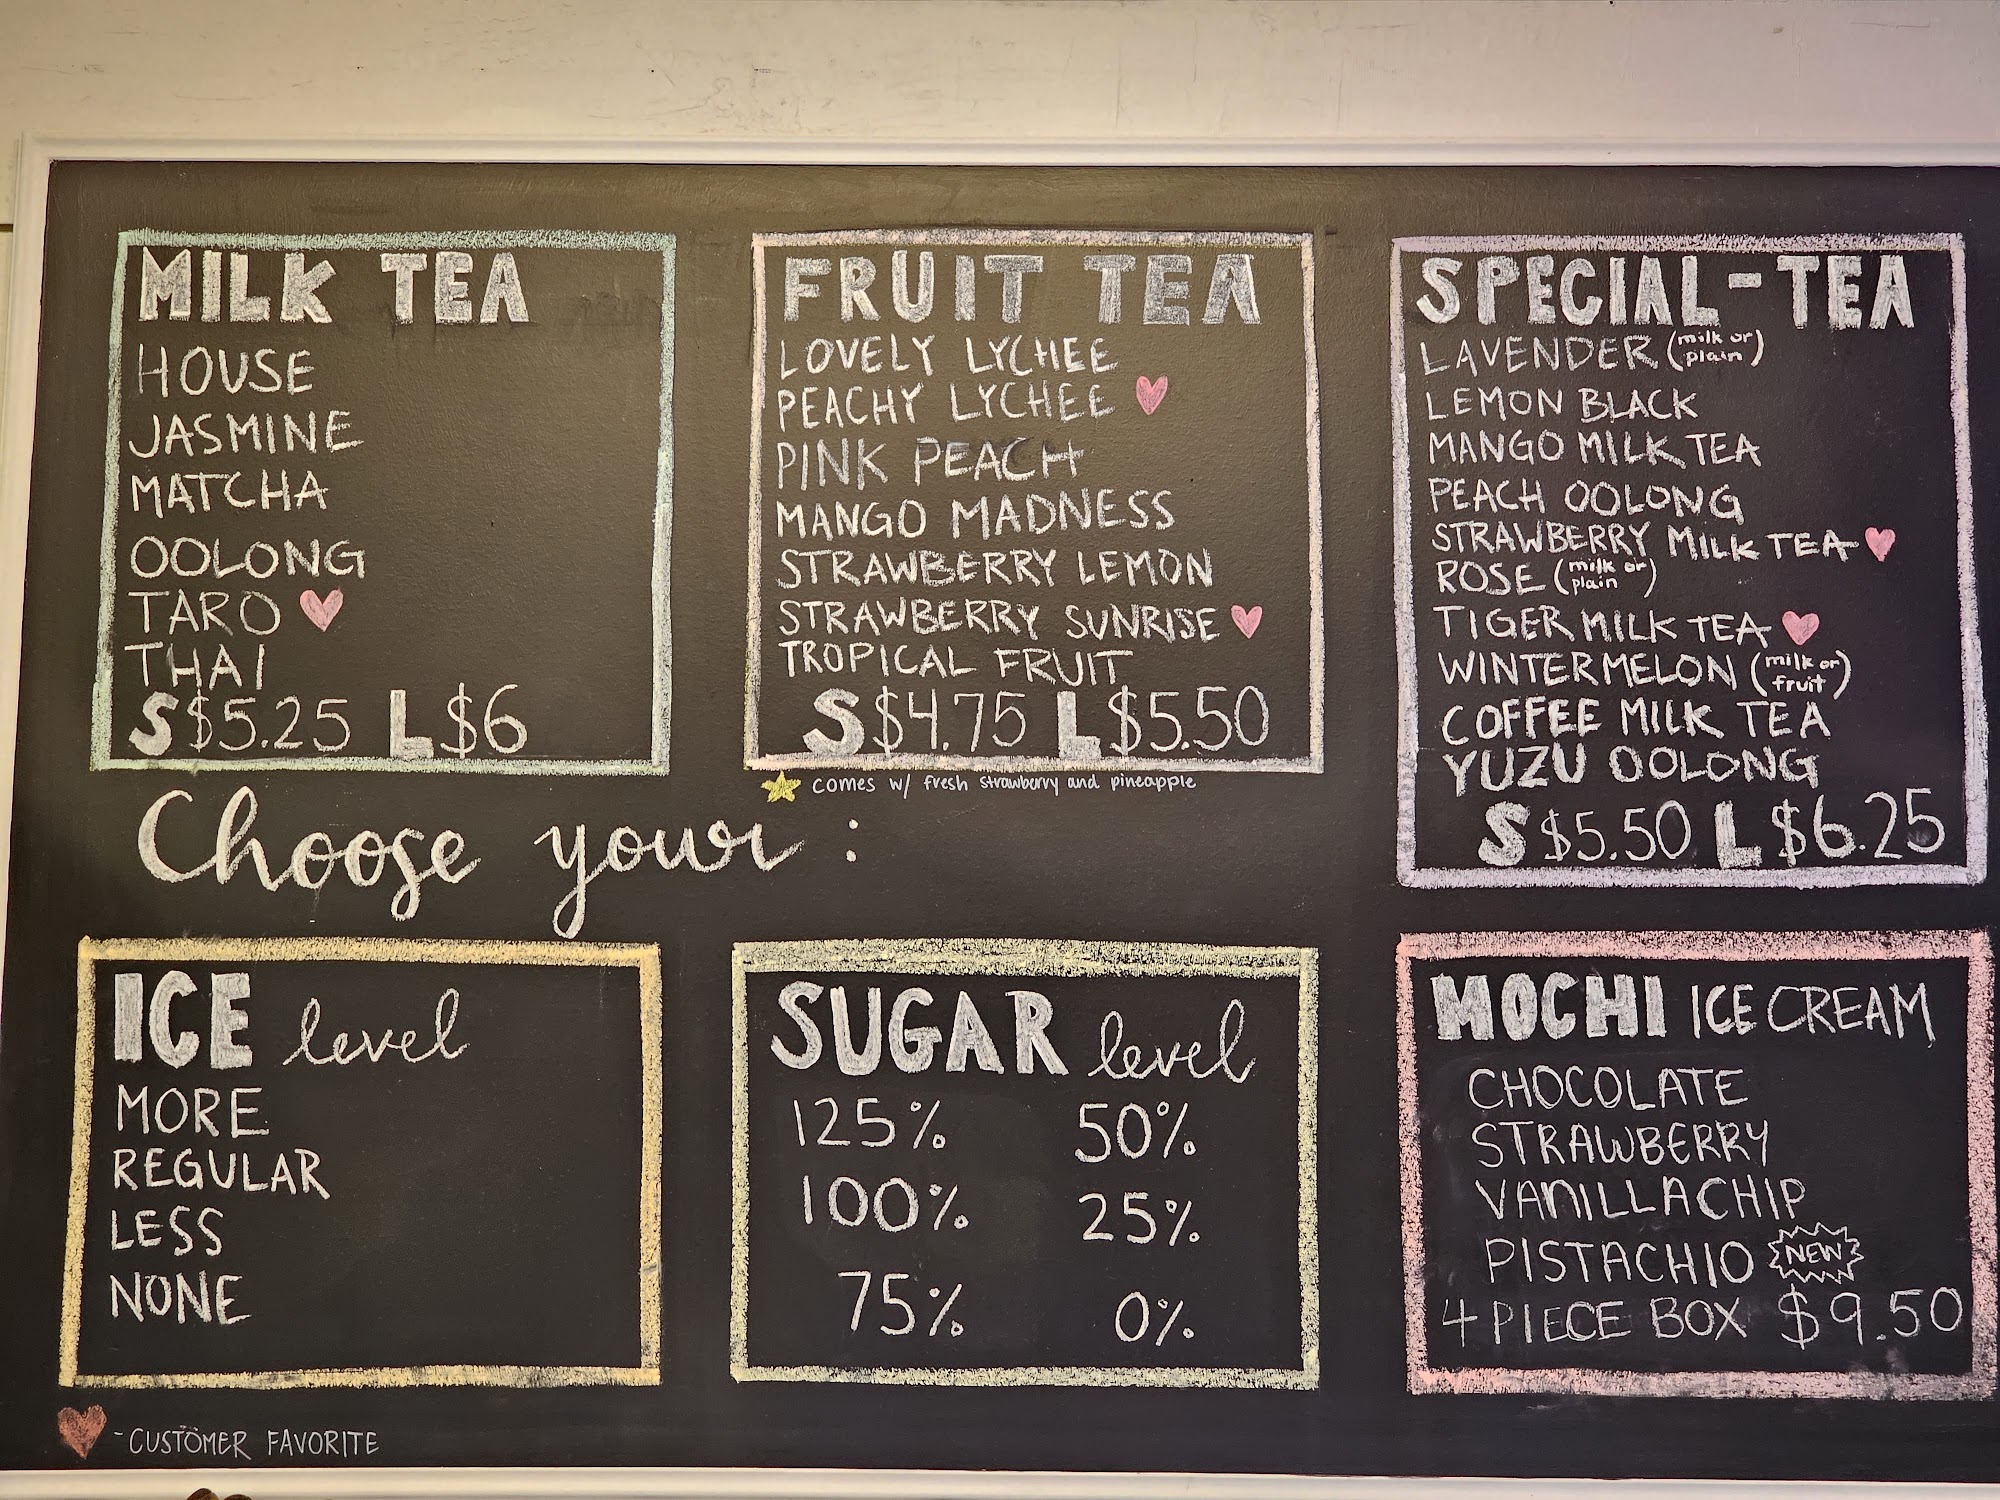 MILK TEA
HOUSE
JASMINE
MATCHA
OOLONG
TARO
THAI
S $5.25 L $6
FRUIT TEA
LOVELY LYCHEE
PEACHY LYCHEE
PINK PEACH
MANGO MADNESS
STRAWBERRY LEMON
STRAWBERRY SUNRISE
TROPICAL FRUIT
S $4.75 L $5.50
comes w/ fresh strawberry and pineapple
SPECIAL-TEA
LAVENDER (milk or plain)
LEMON BLACK
MANGO MILK TEA
PEACH OOLONG
STRAWBERRY MILK TEA
ROSE (milk or plain)
TIGER MILK TEA
WINTERMELON (milk or fruit)
COFFEE MILK TEA
YUZU OOLONG
S $5.50 L $6.25
Choose your :
ICE level
MORE
REGULAR
LESS
NONE
SUGAR level
125% 50%
100% 25%
75% 0%
MOCHI ICE CREAM
CHOCOLATE
STRAWBERRY
VANILLA CHIP
PISTACHIO NEW
4 PIECE BOX $9.50
- CUSTOMER FAVORITE